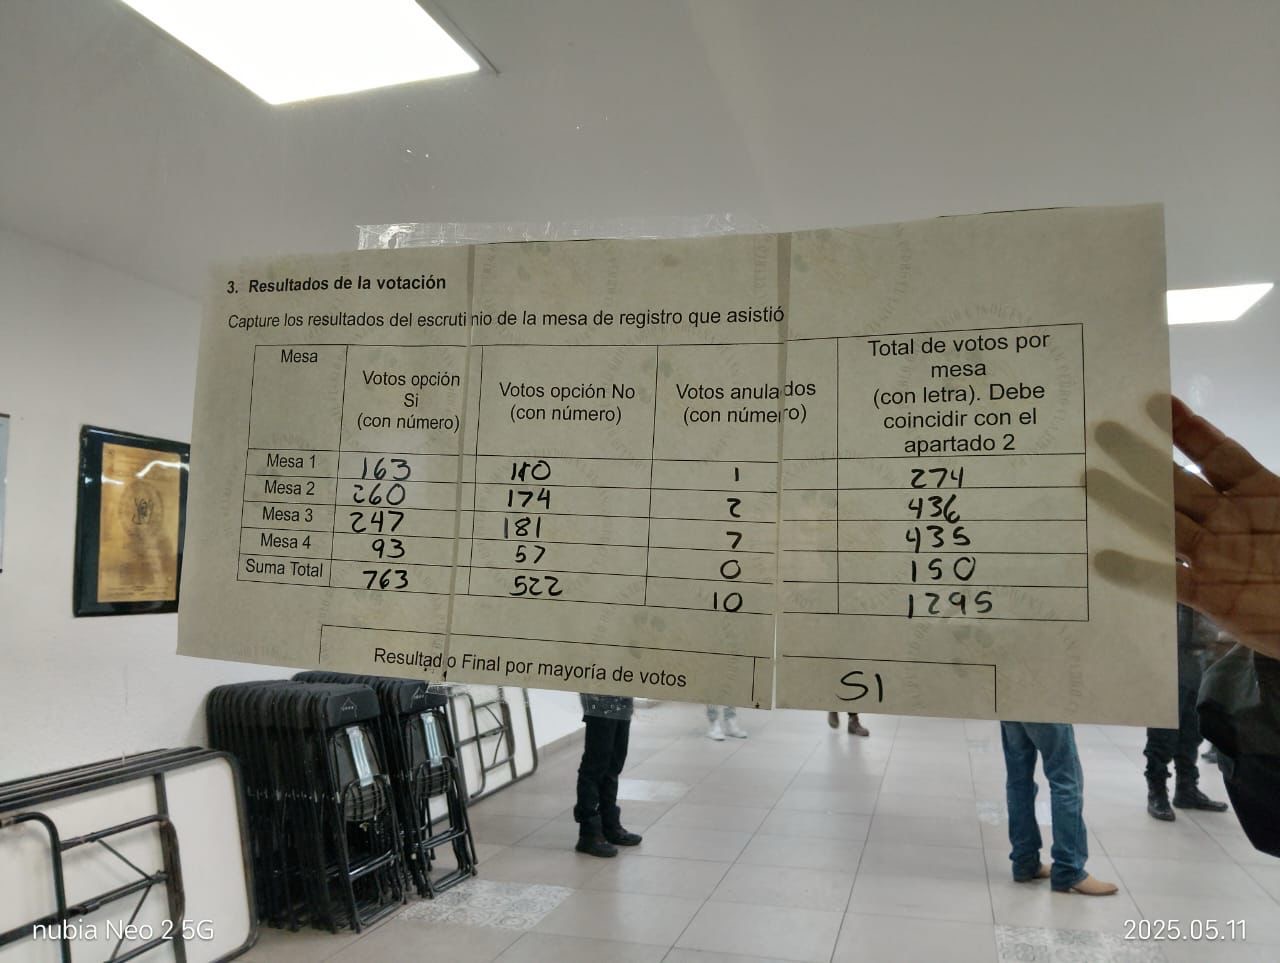 3. Resultados de la votación
Capture los resultados del escrutinio de la mesa de registro que asistió
Mesa
Votos opción
Si
(con número)
Votos opción No
(con número)
Votos anulados
(con número)
Total de votos por
mesa
(con letra). Debe
coincidir con el
apartado 2
Mesa 1 163 110 1 274
Mesa 2 260 174 2 436
Mesa 3 247 181 7 435
Mesa 4 93 57 0 150
Suma Total 763 522 10 1295
Resultado Final por mayoría de votos SI
nubia Neo 2 5G
2025.05.11